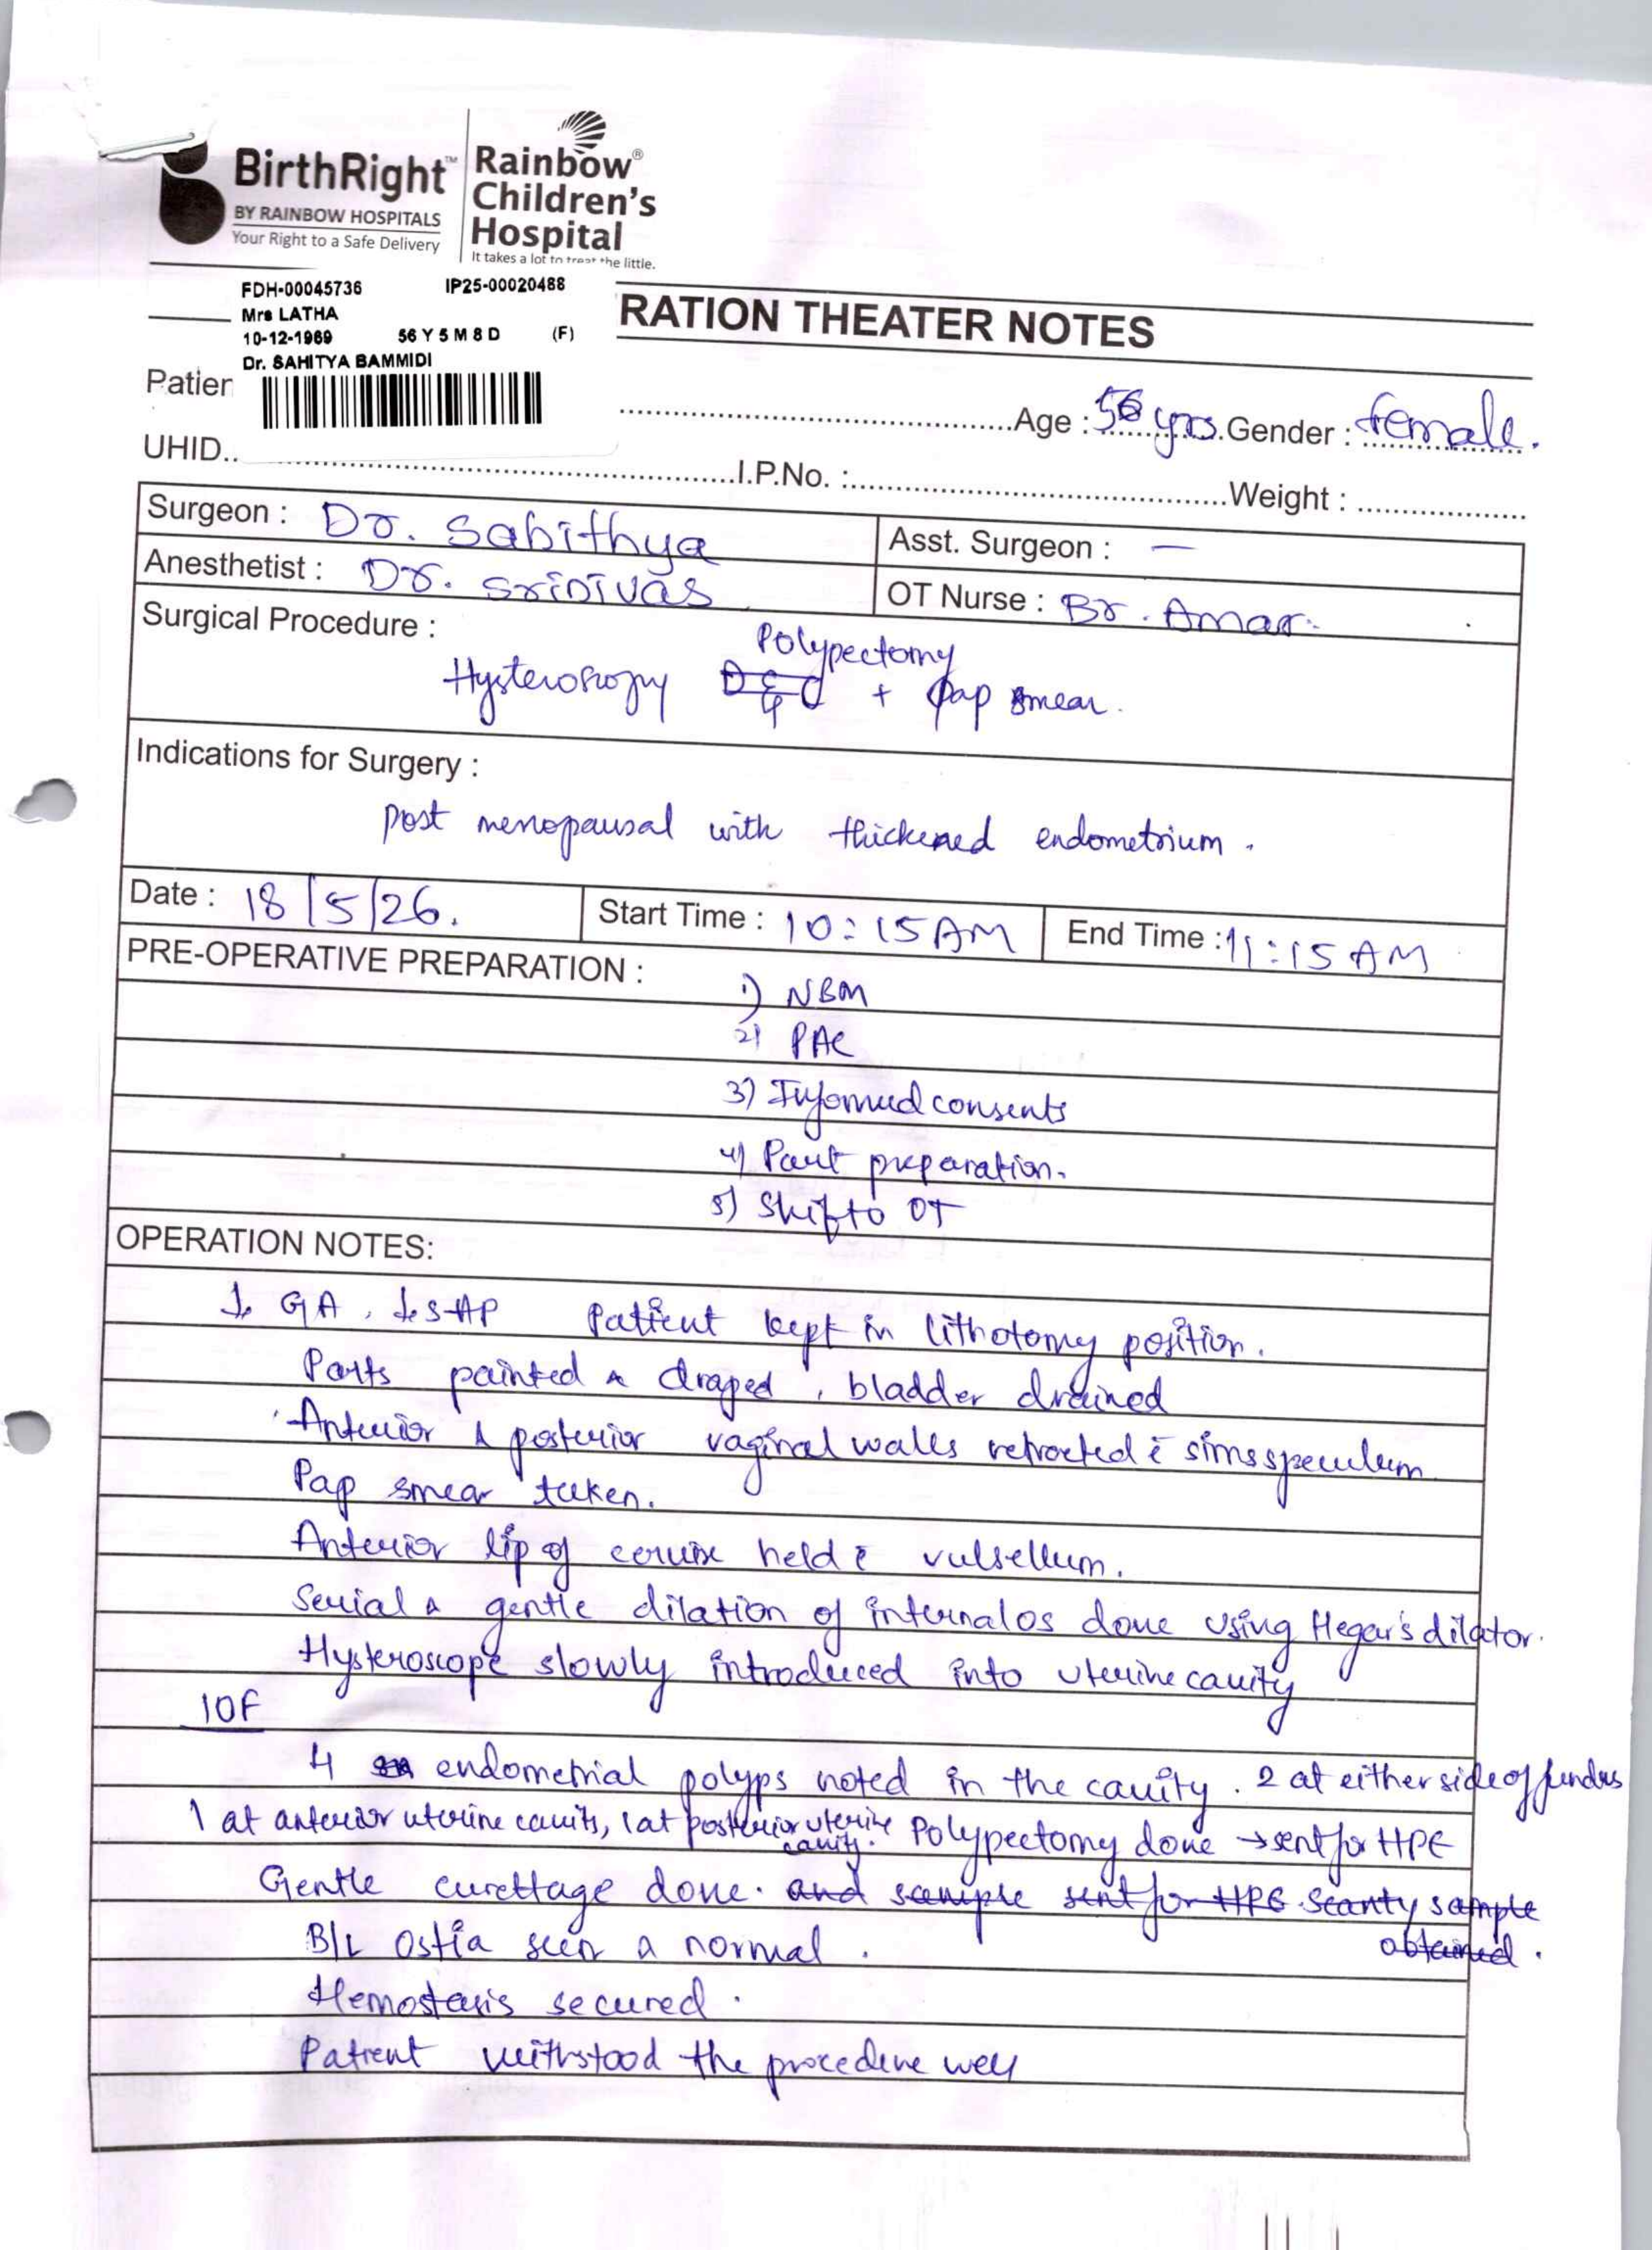 BirthRight™
BY RAINBOW HOSPITALS
Your Right to a Safe Delivery
Rainbow®
Children's
Hospital
It takes a lot to treat the little.
FDH-00045736 IP25-00020488
Mrs LATHA
10-12-1969 56 Y 5 M 8 D (F)
Dr. SAHITYA BAMMIDI
RATION THEATER NOTES
Patien
Age : 56 yrs. Gender : female.
UHID.. I.P.No. : Weight :
Surgeon : Dr. Sabithya Asst. Surgeon : —
Anesthetist : Dr. Srinivas OT Nurse : Br. Amar.
Surgical Procedure :
Polypectomy
Hysteroscopy D&C + pap smear.
Indications for Surgery :
Post menopausal with thickened endometrium.
Date : 18/5/26. Start Time : 10:15 AM End Time : 11:15 AM
PRE-OPERATIVE PREPARATION :
1) NBM
2) PAC
3) Informed consents
4) Part preparation.
5) Shift to OT
OPERATION NOTES:
GA, Patient kept in lithotomy position.
Parts painted & draped, bladder drained
Anterior & posterior vaginal walls retracted c̄ sims speculum
Pap smear taken.
Anterior lip of cervix held c̄ vulsellum.
Serial & gentle dilation of internal os done using Hegar's dilator.
Hysteroscope slowly introduced into uterine cavity
IOF
4 endometrial polyps noted in the cavity. 2 at either side of fundus
1 at anterior uterine cavity, 1 at posterior uterine cavity. Polypectomy done → sent for HPE
Gentle curettage done. and sample sent for HPE. Scanty sample
obtained.
B/L Ostia seen & normal.
Hemostasis secured.
Patient withstood the procedure well